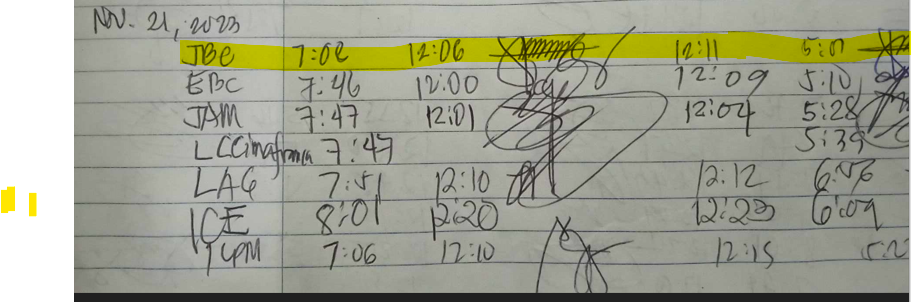 Nov. 21, 2023
JBC 7:02 12:06 12:11 5:01
EBC 7:46 12:00 12:09 5:10
JAM 7:47 12:01 12:04 5:28
7:47 5:39
LAG 7:51 12:10 12:12
ICE 8:01 12:20 12:23 6:09
7:06 12:10 12:15